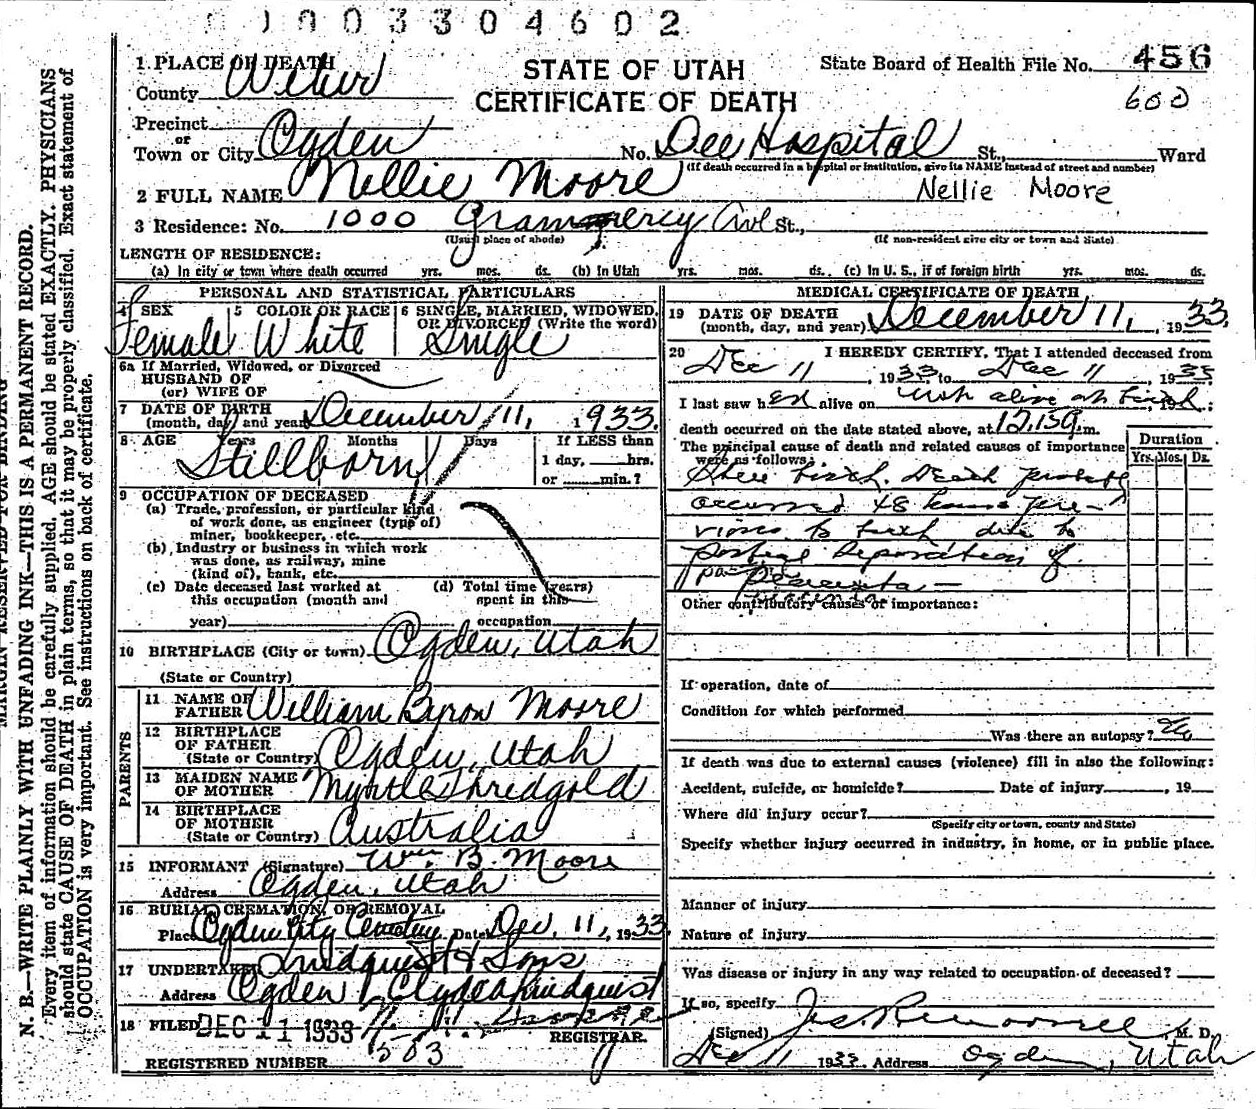 003304602
1 PLACE OF DEATH
County Weber
STATE OF UTAH
CERTIFICATE OF DEATH
State Board of Health File No. 456
600
Precinct
or
Town or City Ogden No. Dee Hospital St., Ward
(If death occurred in a hospital or institution, give its NAME instead of street and number)
2 FULL NAME Nellie Moore
Nellie Moore
3 Residence: No. 1000 Grammercy Ave St.,
(Usual place of abode) (If non-resident give city or town and State)
LENGTH OF RESIDENCE:
(a) In city or town where death occurred yrs. mos. ds. (b) In Utah yrs. mos. ds. (c) In U. S., if of foreign birth yrs. mos. ds.
PERSONAL AND STATISTICAL PARTICULARS
4 SEX Female
5 COLOR OR RACE White
6 SINGLE, MARRIED, WIDOWED, OR DIVORCED (Write the word) Single
6a If Married, Widowed, or Divorced
HUSBAND OF
(or) WIFE OF
7 DATE OF BIRTH
(month, day, and year) December 11, 1933.
8 AGE Years Months Days If LESS than
1 day, hrs.
or min.?
Stillborn
9 OCCUPATION OF DECEASED
(a) Trade, profession, or particular kind
of work done, as engineer (type of)
miner, bookkeeper, etc.
(b) Industry or business in which work
was done, as railway, mine
(kind of), bank, etc.
(c) Date deceased last worked at
this occupation (month and
year)
(d) Total time (years)
spent in this
occupation
10 BIRTHPLACE (City or town) Ogden, Utah
(State or Country)
PARENTS
11 NAME OF
FATHER William Byron Moore
12 BIRTHPLACE
OF FATHER
(State or Country) Ogden, Utah
13 MAIDEN NAME
OF MOTHER Myrtle Thredgold
14 BIRTHPLACE
OF MOTHER
(State or Country) Australia
15 INFORMANT (Signature) Wm. B. Moore
Address Ogden, Utah
16 BURIAL, CREMATION, OR REMOVAL
Place Ogden City Cemetery Date Dec. 11, 1933.
17 UNDERTAKER Lindquist & Sons
Address Ogden Clyde Lindquist
18 FILED DEC 11 1933
REGISTRAR.
REGISTERED NUMBER 503
MEDICAL CERTIFICATE OF DEATH
19 DATE OF DEATH
(month, day, and year) December 11, 1933.
20 I HEREBY CERTIFY, That I attended deceased from
Dec 11, 1933 to Dec 11, 1933
I last saw her alive on not alive at birth, 19 ;
death occurred on the date stated above, at 12,15 m.
The principal cause of death and related causes of importance
were as follows:
Duration
Yrs. Mos. Ds.
Still birth. Death probably
occurred 48 hours pre-
vious to birth due to
partial separation of
placenta
placenta
Other contributory causes of importance:
If operation, date of
Condition for which performed
Was there an autopsy? No
If death was due to external causes (violence) fill in also the following:
Accident, suicide, or homicide? Date of injury , 19
Where did injury occur?
(Specify city or town, county and State)
Specify whether injury occurred in industry, in home, or in public place.
Manner of injury
Nature of injury
Was disease or injury in any way related to occupation of deceased?
If so, specify
(Signed) M. D.
Dec 11 1933. Address Ogden, Utah
N. B.—WRITE PLAINLY WITH UNFADING INK—THIS IS A PERMANENT RECORD.
Every item of information should be carefully supplied. AGE should be stated EXACTLY. PHYSICIANS
should state CAUSE OF DEATH in plain terms, so that it may be properly classified. Exact statement of
OCCUPATION is very important. See instructions on back of certificate.
MARGIN RESERVED FOR BINDING